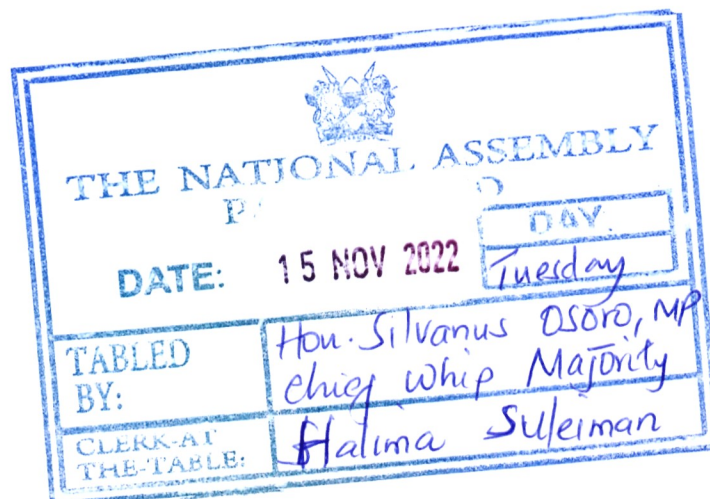 THE NATIONAL ASSEMBLY
DATE: 15 NOV 2022
DAY
Tuesday
TABLED BY:
Hon. Silvanus Osoro, MP
Chief Whip Majority
CLERK-AT THE-TABLE:
Halima Suleiman